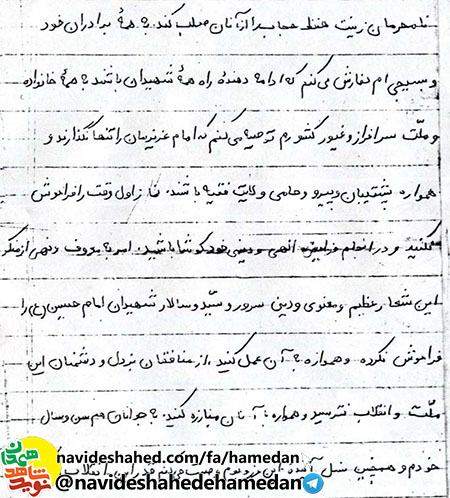 نامحرمان زینت حفظ حجاب را از آنان صلب کند. به همهٔ برادران خود
و بسیجی ام سفارش می کنم که ادامه دهندهٔ راه همهٔ شهیدان باشند به همهٔ خانواده
و ملّت سرافراز و غیور کشورم توصیه می کنم که امام عزیزمان را تنها نگذارند و
همواره پشتیبان و پیرو و حامی ولایت فقیه باشند. نماز اول وقت را فراموش
نکنید و در انجام فرایض الهی و دینی خود کوشا باشید. امر به معروف و نهی از منکر
این شعار عظیم و معنوی و دین سرور و سیّد و سالار شهیدان امام حسین (ع) را
فراموش نکرده و همواره به آن عمل کنید. از منافقان بزدل و دشمنان این
ملّت و انقلاب نترسید و همواره با آنان مبارزه کنید. به جوانان هم سن و سال
خودم و همچنین نسل آینده این مرز و بوم وصیت می کنم قدر این انقلاب
نوید شاهد همدان
navideshahed.com/fa/hamedan
@navideshahedehamedan